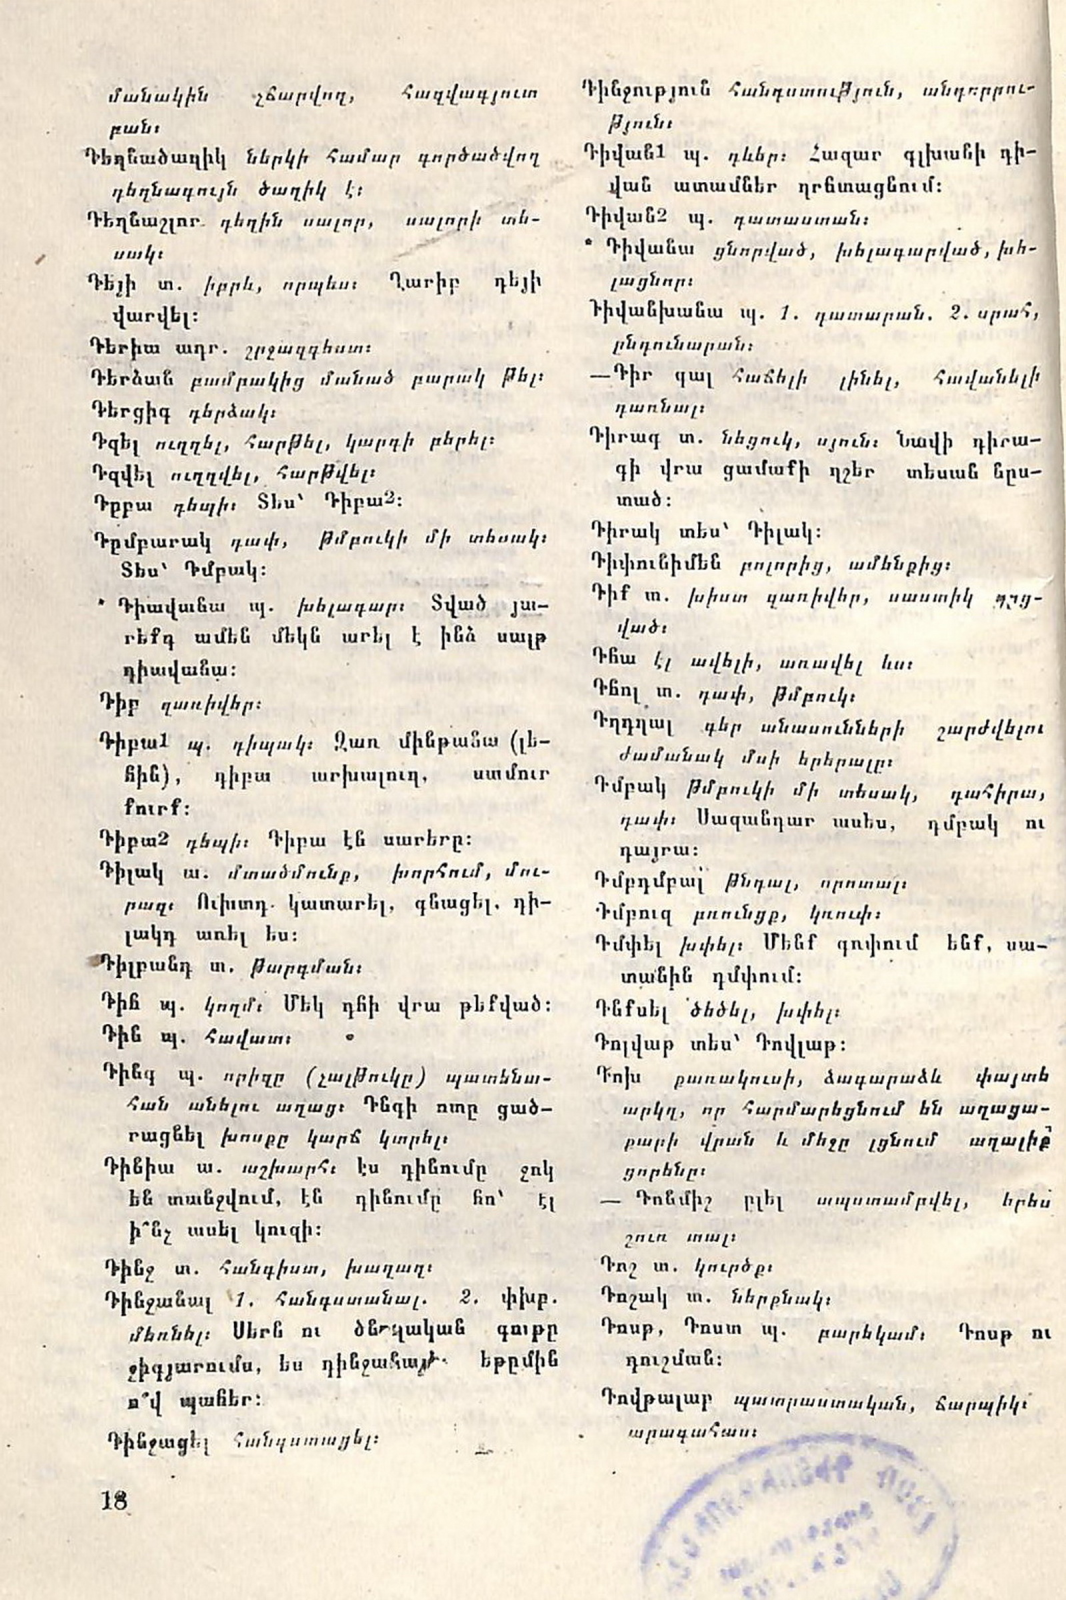 մանակին չճարվող, հազվագյուտ
բան։
Դեղնածաղիկ ներկի համար գործածվող
դեղնագույն ծաղիկ է։
Դեղնաշլոր դեղին սալոր, սալորի տե-
սակ։
Դեյի տ. իբրև, որպես։ Ղարիբ դեյի
վարվել։
Դերիա ադր. շրջազգեստ։
Դերձան բամբակից մանած բարակ թել։
Դերցիգ դերձակ։
Դզել ուղղել, հարթել, կարգի բերել։
Դզվել ուղղվել, հարթվել։
Դըբա դեպի։ Տես՝ Դիբա2։
Դըմբարակ դափ, թմբուկի մի տեսակ։
Տես՝ Դմբակ։
* Դիավանա պ. խելագար։ Տված յա-
րեքդ ամեն մեկն արել է ինձ սալթ
դիավանա։
Դիբ զառիվեր։
Դիբա1 պ. դիպակ։ Զառ մինթանա (լե-
հին), դիբա արխալուղ, սամուր
քուրք։
Դիբա2 դեպի։ Դիբա էն սարերը։
Դիլակ ա. մտածմունք, խորհում, մու-
րազ։ Ուխտդ կատարել, գնացել, դի-
լակդ առել ես։
Դիլբանդ տ. թարգման։
Դիհ պ. կողմ։ Մեկ դհի վրա թեքված։
Դին պ. հավատ։
Դինգ պ. որիզը (չալթուկը) պատենա-
հան անելու աղաց։ Դնգի ոտը ցած-
րացնել խոսքը կարճ կտրել։
Դինիա ա. աշխարհ։ Էս դինումը չոկ
են տանջվում, էն դինումը հո՝ էլ
ի՞նչ ասել կուզի։
Դինջ տ. հանգիստ, խաղաղ։
Դինջանալ 1. հանգստանալ. 2. փխբ.
մեռնել։ Սերն ու ծնողական գութը
ջիգյարումս, ես դինջանամ եթըմին
ո՞վ պահեր։
Դինջացել հանգստացել։
18
Դինջություն հանգստություն, անդորրու-
թյուն։
Դիվան1 պ. դևեր։ Հազար գլխանի դի-
վան ատամներ ղրնտացնում։
Դիվան2 պ. դատաստան։
* Դիվանա ցնորված, խելագարված, խե-
լացնոր։
Դիվանխանա պ. 1. դատարան. 2. սրահ,
ընդունարան։
—Դիր գալ հաճելի լինել, հավանելի
դառնալ։
Դիրագ տ. նեցուկ, սյուն։ Նավի դիրա-
գի վրա ցամաքի ղշեր տեսան նըս-
տած։
Դիրակ տես՝ Դիլակ։
Դիփունիմեն բոլորից, ամենքից։
Դիք տ. խիստ զառիվեր, սաստիկ ցըց-
ված։
Դհա էլ ավելի, առավել ևս։
Դհոլ տ. դափ, թմբուկ։
Դղդղալ գեր անասունների շարժվելու
ժամանակ մսի երերալը։
Դմբակ թմբուկի մի տեսակ, դահիրա,
դափ։ Սազանդար ասես, դմբակ ու
դայրա։
Դմբդմբալ թնդալ, որոտալ։
Դմբուզ բռունցք, կռուփ։
Դմփել խփել։ Մենք գոփում ենք, սա-
տանին դմփում։
Դնքսել ծեծել, խփել։
Դոլվաթ տես՝ Դովլաթ։
Դոխ քառակուսի, ձագարաձև փայտե
արկղ, որ հարմարեցնում են աղացա-
քարի վրան և մեջը լցնում աղալիք
ցորենը։
— Դոնմիշ ըլել ապստամբվել, երես
շուռ տալ։
Դոշ տ. կուրծք։
Դոշակ տ. ներքնակ։
Դոսթ, Դոստ պ. բարեկամ։ Դոսթ ու
դուշման։
Դովթալաբ պատրաստական, ճարպիկ։
արագահաս։